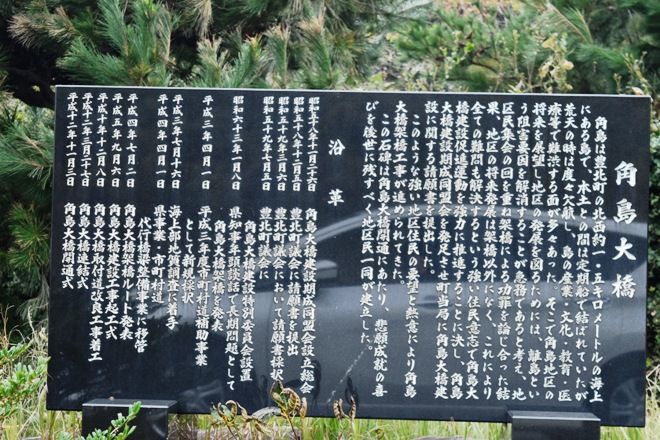 角島大橋
角島は豊北町の北西約一・五キロメートルの海上
にある島で、本土との間は定期船で結ばれていたが
荒天の時は度々欠航し、島の産業・文化・教育・医
療まで難渋する面が多々あった。そこで角島地区の
将来を展望し地区の発展を図るためには、離島とい
う阻害要因を解消することが急務であると考え、地
区民集会の回を重ね架橋による功罪を論じ合った結
果、地区の将来発展は架橋以外になく、これにより
全ての難問も解決するという強い住民意志で角島大
橋建設促進運動を強力に推進することに決し、角島
大橋建設期成同盟会を発足させ町当局に角島大橋建
設に関する請願書を提出した。
このような強い地区住民の要望と熱意により角島
大橋架橋工事が進められてきた。
この石碑は角島大橋開通にあたり、悲願成就の喜
びを後世に残すべく地区民一同が建立した。
沿革
昭和五十八年十一月二十六日 角島大橋建設期成同盟会設立総会
昭和五十八年十二月五日 豊北町議会に請願書を提出
昭和五十九年三月六日 豊北町議会において請願書採択
昭和五十九年七月五日 豊北町議会に
角島大橋建設特別委員会設置
昭和六十三年一月八日 県知事年頭談話で長期問題として
角島大橋架橋を発表
平成三年四月一日 平成三年度市町村道補助事業
として新規採択
平成三年七月十六日 海上部地質調査に着手
平成四年四月一日 県事業・市町村道
代行橋梁整備事業に移管
平成四年七月二日 角島大橋架橋ルート発表
平成五年九月六日 角島大橋建設工事起工式
平成十年十二月八日 角島大橋取付道改良工事着工
平成十二年三月二十七日 角島大橋連結式
平成十二年十一月三日 角島大橋開通式